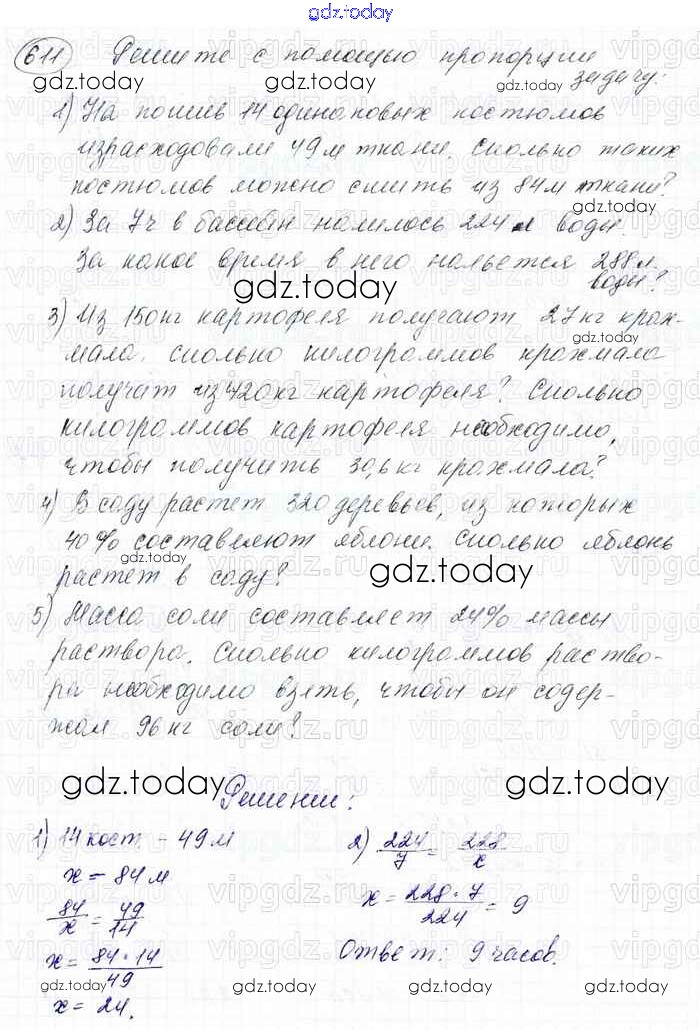 gdz.today
611 Решите с помощью пропорции
задачу:
1) На пошив 14 одинаковых костюмов
израсходовали 49 м ткани. Сколько таких
костюмов можно сшить из 84 м ткани?
2) За 7 ч в бассейн налилось 224 л воды.
За какое время в него нальется 288 л
воды?
3) Из 150 кг картофеля получают 27 кг крах-
мала. Сколько килограммов крахмала
получат из 420 кг картофеля? Сколько
килограммов картофеля необходимо,
чтобы получить 30,6 кг крахмала?
4) В саду растет 320 деревьев, из которых
40% составляют яблони. Сколько яблонь
растет в саду?
5) Масса соли составляет 24% массы
раствора. Сколько килограммов раство-
ра необходимо взять, чтобы он содер-
жал 96 кг соли?
Решении:
1) 14 кост. - 49 м
x - 84 м
84/x = 49/14
x = 84·14/49
x = 24.
2) 224/7 = 228/x
x = 228·7/224 = 9
Ответ: 9 часов.